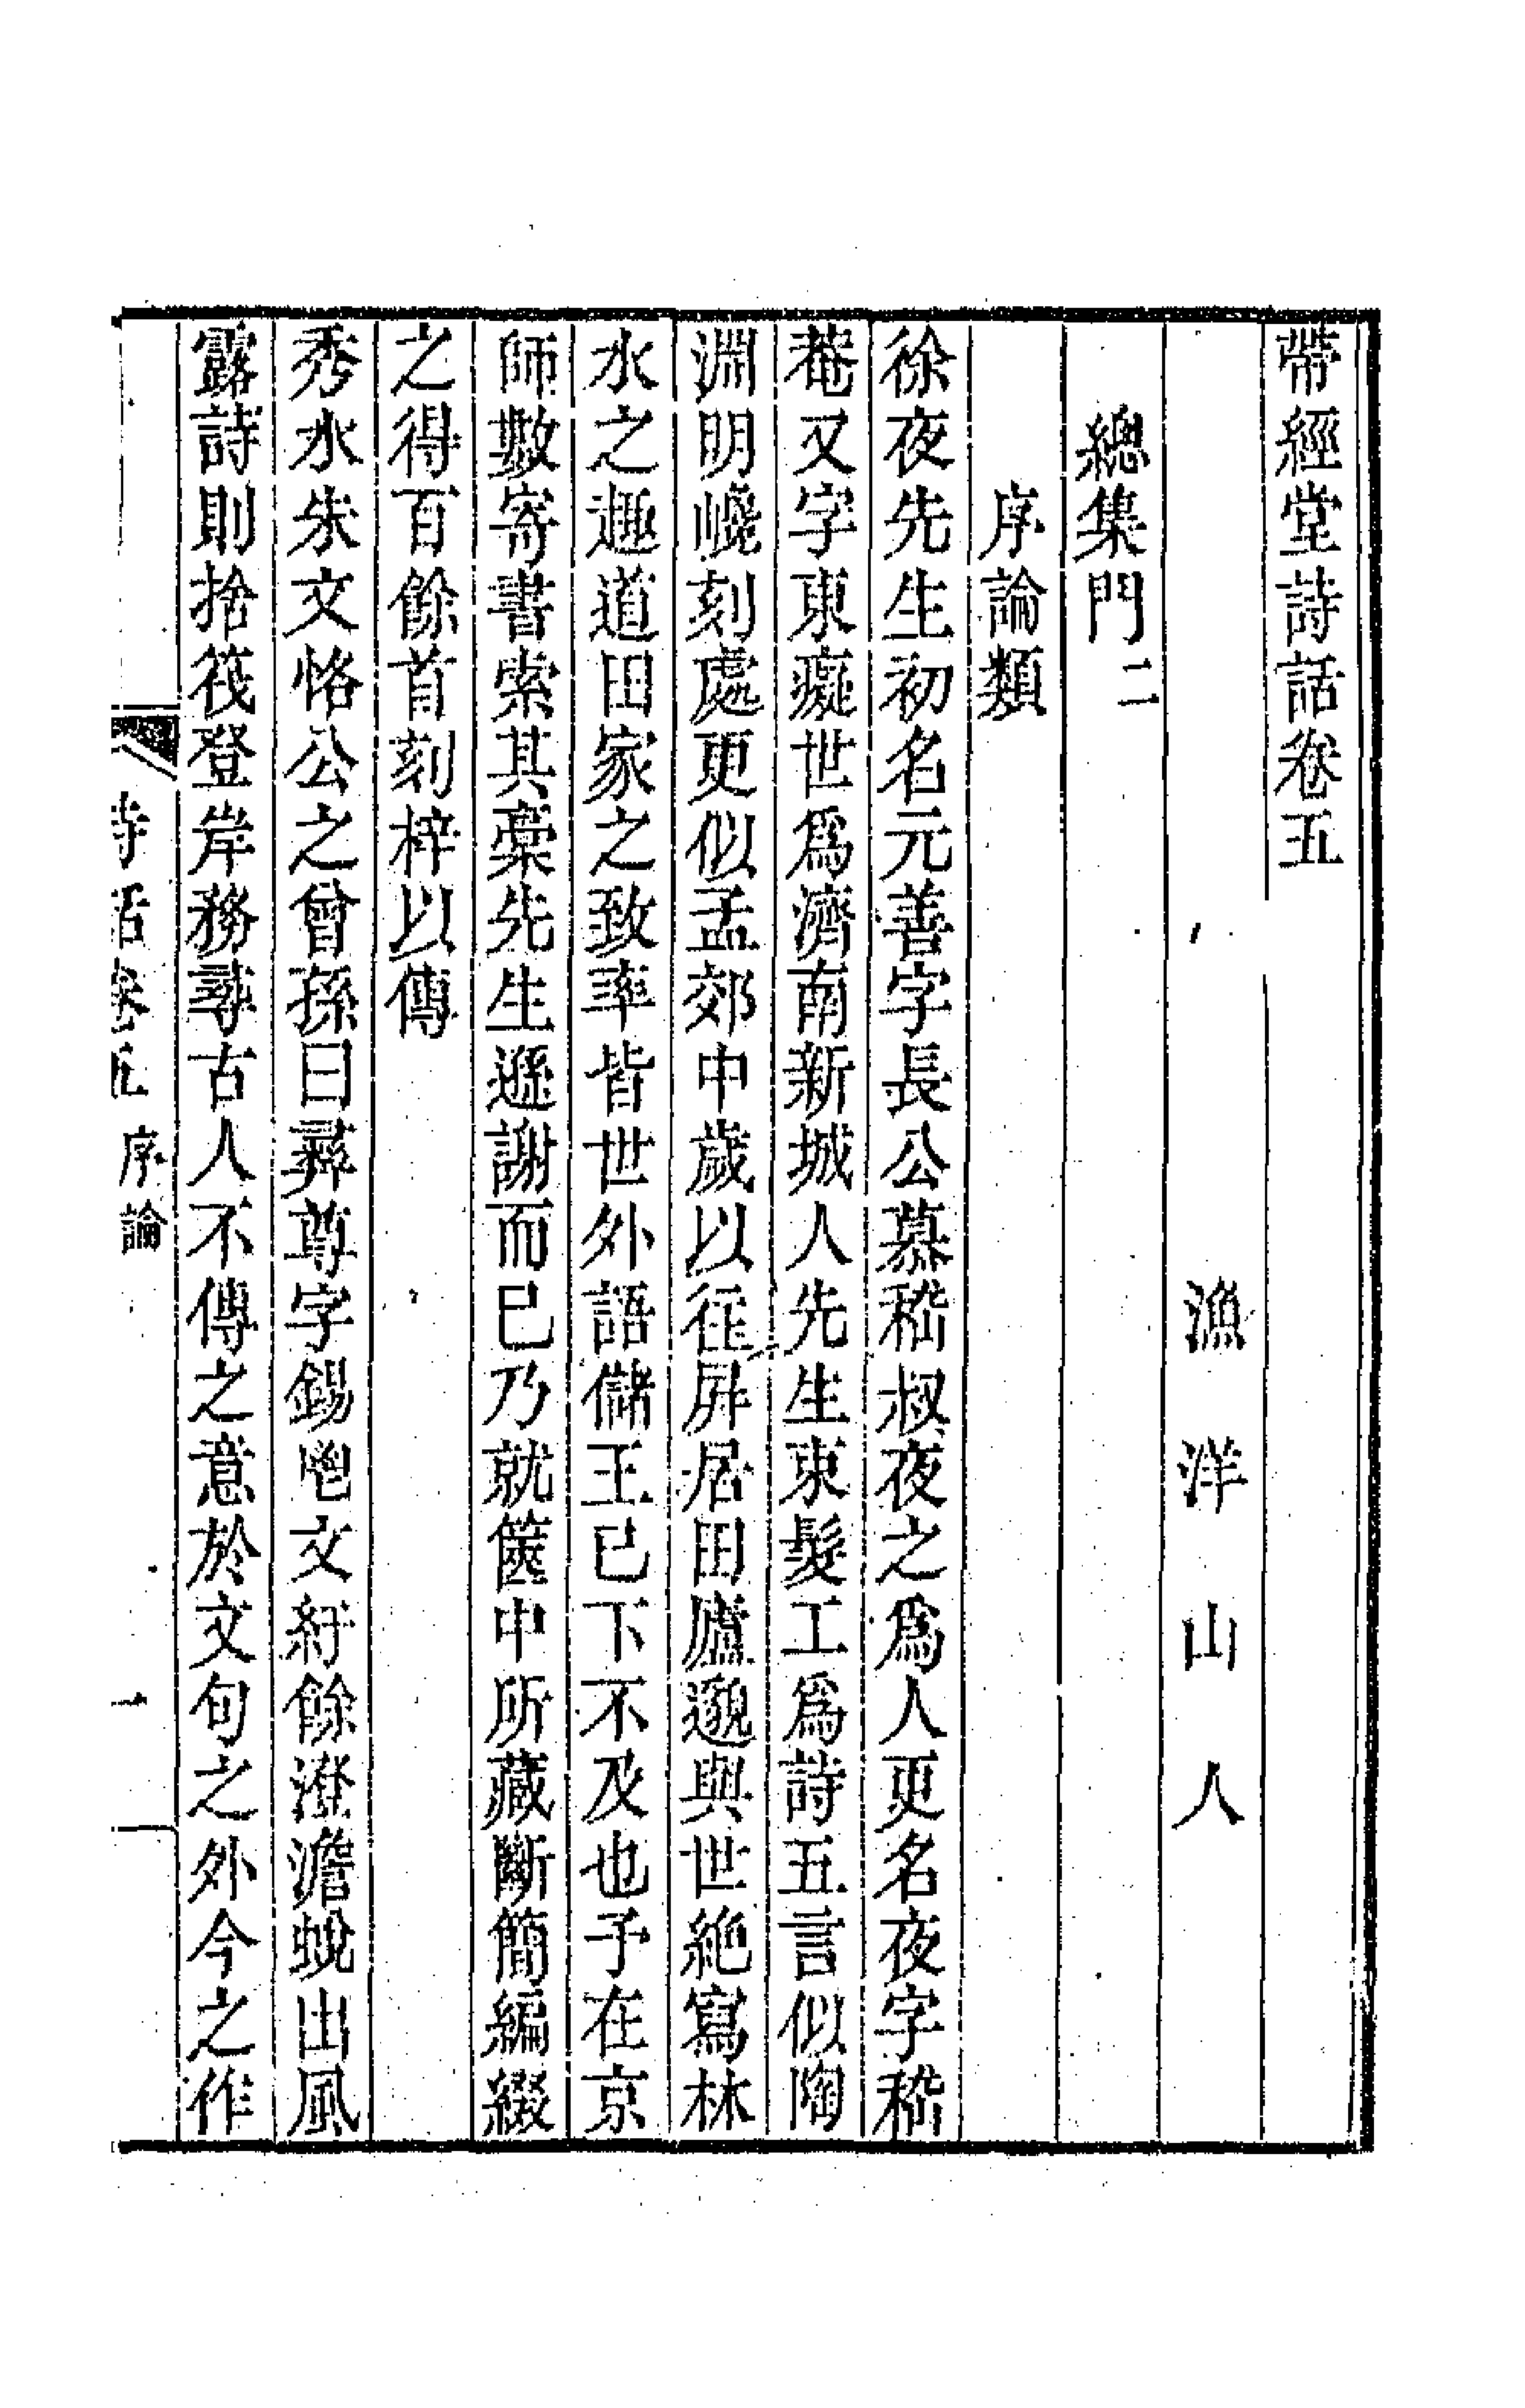 帶經堂詩話卷五
漁洋山人
總集門二
序論類
徐夜先生初名元善字長公慕嵇叔夜之爲人更名夜字嵇
菴又字東癡世爲濟南新城人先生束髮工爲詩五言似陶
淵明巉刻處更似孟郊中歲以往屏居田廬邈與世絶寫林
水之趣道田家之致率皆世外語儲王已下不及也予在京
師數寄書索其稾先生遜謝而已乃就篋中所藏斷簡編綴
之得百餘首刻梓以傳
秀水朱文恪公之曾孫曰彝尊字錫鬯文紆餘澄澹蛻出風
露詩則捨筏登岸務尋古人不傳之意於文句之外今之作
詩話卷五 序論 一